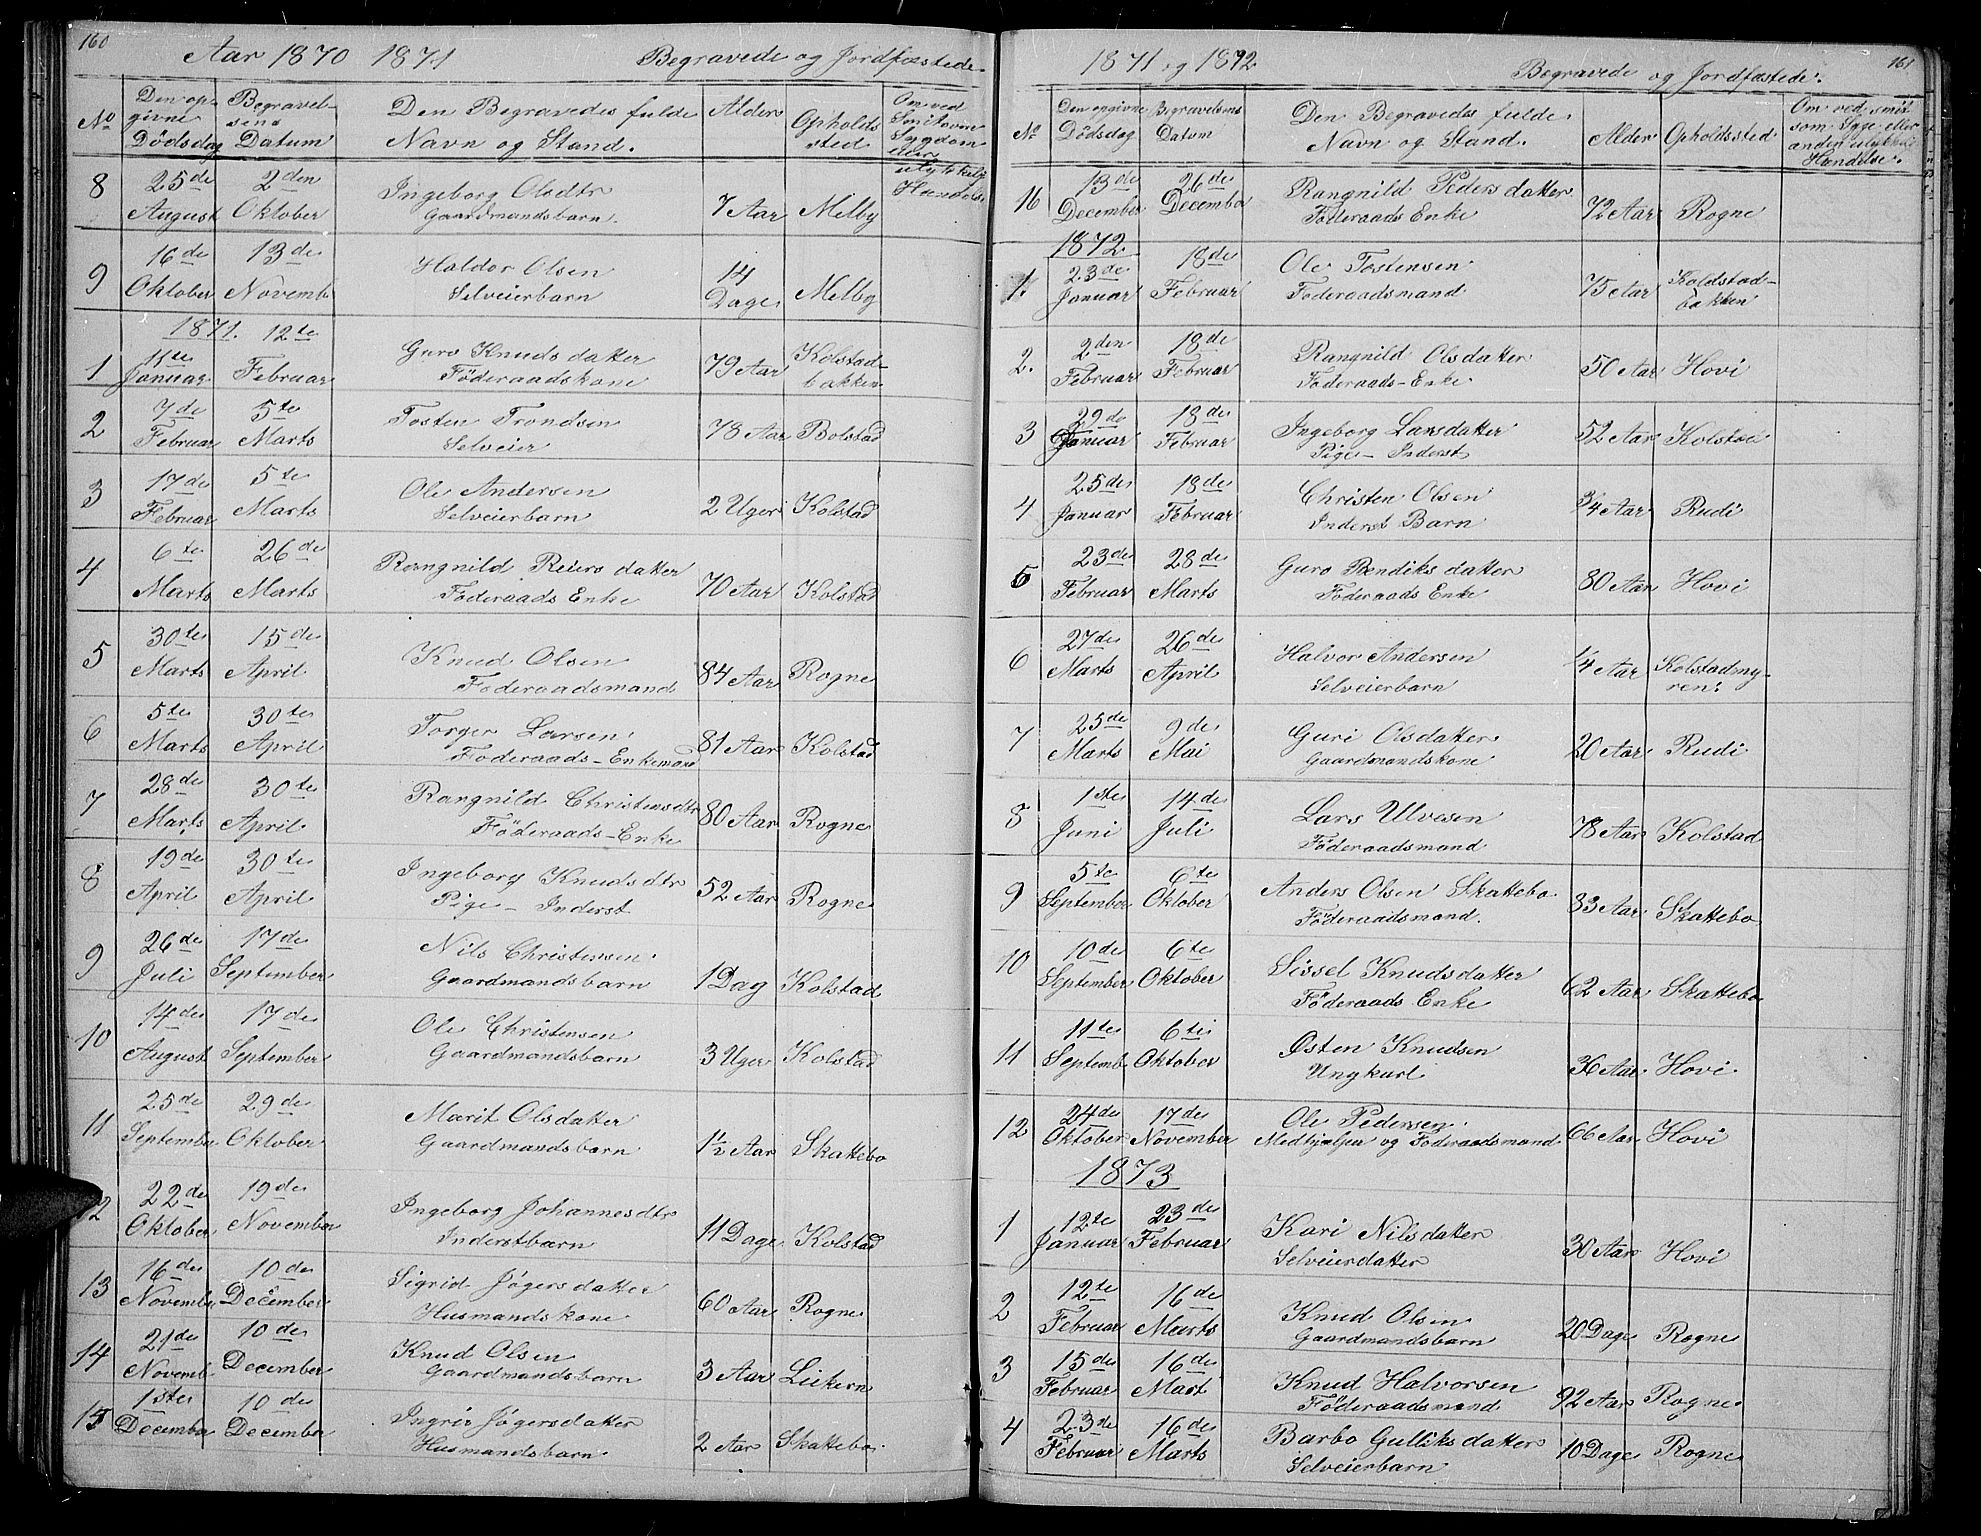 160
Aar 1870 1871 Begravede og Jordfæstede.
No Den opgivne Dödsdag Begravelsens Datum Den Begravedes fulde Navn og Stand. Alder Opholdssted Om ved
8 25de 2den Ingeborg Olsdtr
August Oktober Gaardmandsbarn. 7 Aar Melby
9 16de 13de Haldor Olsen 14
Oktober Novemb Selveierbarn Dage Melby
1871. 12te
1 11te Januar Februar Guro Knudsdatter 79 Aar Kolstadbakken
Föderaadskone
2 7de 5te Tosten Trondsen 78 Aar Bolstad
Februar Marts Selveier
3 17de 5te Ole Andersen
Februar Marts Selveierbarn 2 Uger Kolstad
4 6te 26de Rangnild Reiersdatter
Marts Marts Föderaads Enke 70 Aar Kolstad
5 30te 15de Knud Olsen
Marts April Foderaadsmand 84 Aar Rogne
6 5te 30te Torger Larsen
Marts April Foderaads-Enkemand 81 Aar Kolstad
7 28de 30te Rangnild Christensdtr
Marts April Föderaads-Enke 80 Aar Rogne
8 19de 30te Ingeborg Knudsdtr
April April Pige - Inderst 52 Aar Rogne
9 26de 17de Nils Christensen
Juli September Gaardmandsbarn 1 Dag Kolstad
10 14de 17de Ole Christensen
August September Gaardmandsbarn 3 Uger Kolstad
11 25de 29de Marit Olsdatter
Septembe Oktober Gaardmandsbarn 1½ Aar Skattebo
12 22de 19de Ingeborg Johannesdtr
Oktober November Inderstbarn 11 Dage Kolstad
13 16de 10de Sigrid Jögersdatter
Novembe December Husmandskone 60 Aar Rogne
14 21de 10de Knud Olsen
Novemb December Gaardmandsbarn 3 Aar
15 1ste 10de Jögersdatter
Decembe December Husmandsbarn 2 Aar Skattebo.
161
1871 og 1872 Begravede og Jordfæstede.
No Den opgivne Dödsdag Begravelsens Datum Den Begravedes fulde Navn og Stand. Alder Opholdssted Om ved smitsom Syge eller anden ulykkel Hændelse.
16 13de 26de Rangnild Pedersdatter
December December Föderaads Enke 72 Aar Rogne
1872
1. 23de 18de Ole Tostensen
Januar Februar Foderaadsmand 75 Aar Koldstadbakken
2. 2den 18de Rangnild Olsdatter
Februar Februar Foderaads-Enke 50 Aar Hovi
3 29de 18de Ingeborg Larsdatter
Januar Februar Pige - Inderst 52 Aar Kolstad
4 25de 18de Christen Olsen
Januar Februar Inderst Barn ¾ Aar Rudi
5 23de 28de Guro Bendiksdatter
Februar Marts Foderaads Enke 80 Aar Hovi
6 27de 26de Halvor Andersen
Marts April Selveierbarn ¼ Aar Kolstadmyren.
7 25de 9de Guri Olsdatter
Marts Mai Gaardmandskone 20 Aar Rudi
8 1ste 14de Lars Ulvesen
Juni Juli Föderaadsmand 78 Aar Kolstad
9 5te 6te Anders Olsen Skattebo
September Oktober Föderaadsmand. 83 Aar Skattebo
10 10de 6te Sissel Knudsdatter
September Oktober Föderaads Enke 62 Aar Skattebo
11 11te 6te Østen Knudsen
Septemb Oktober Ungkarl 36 Aar. Hovi
12 24de 17de Ole Pedersen.
Oktober November Medhjelper og Foderaadsmand 66 Aar Hovi
1873
1 12te 23de Kari Nilsdatter
Januar Februar Selveierdatter 30 Aar Hovi
2 12te 16de Knud Olsen
Februar Marts Gaardmandsbarn 20 Dage Rogne
3 15de 16de Knud Halvorsen
Februar Mart Föderaadsmand 92 Aar Rogne
4 23de 16de Barbo Gulliksdatter
Februar Marts Selveierbarn 10 Dage Rogne